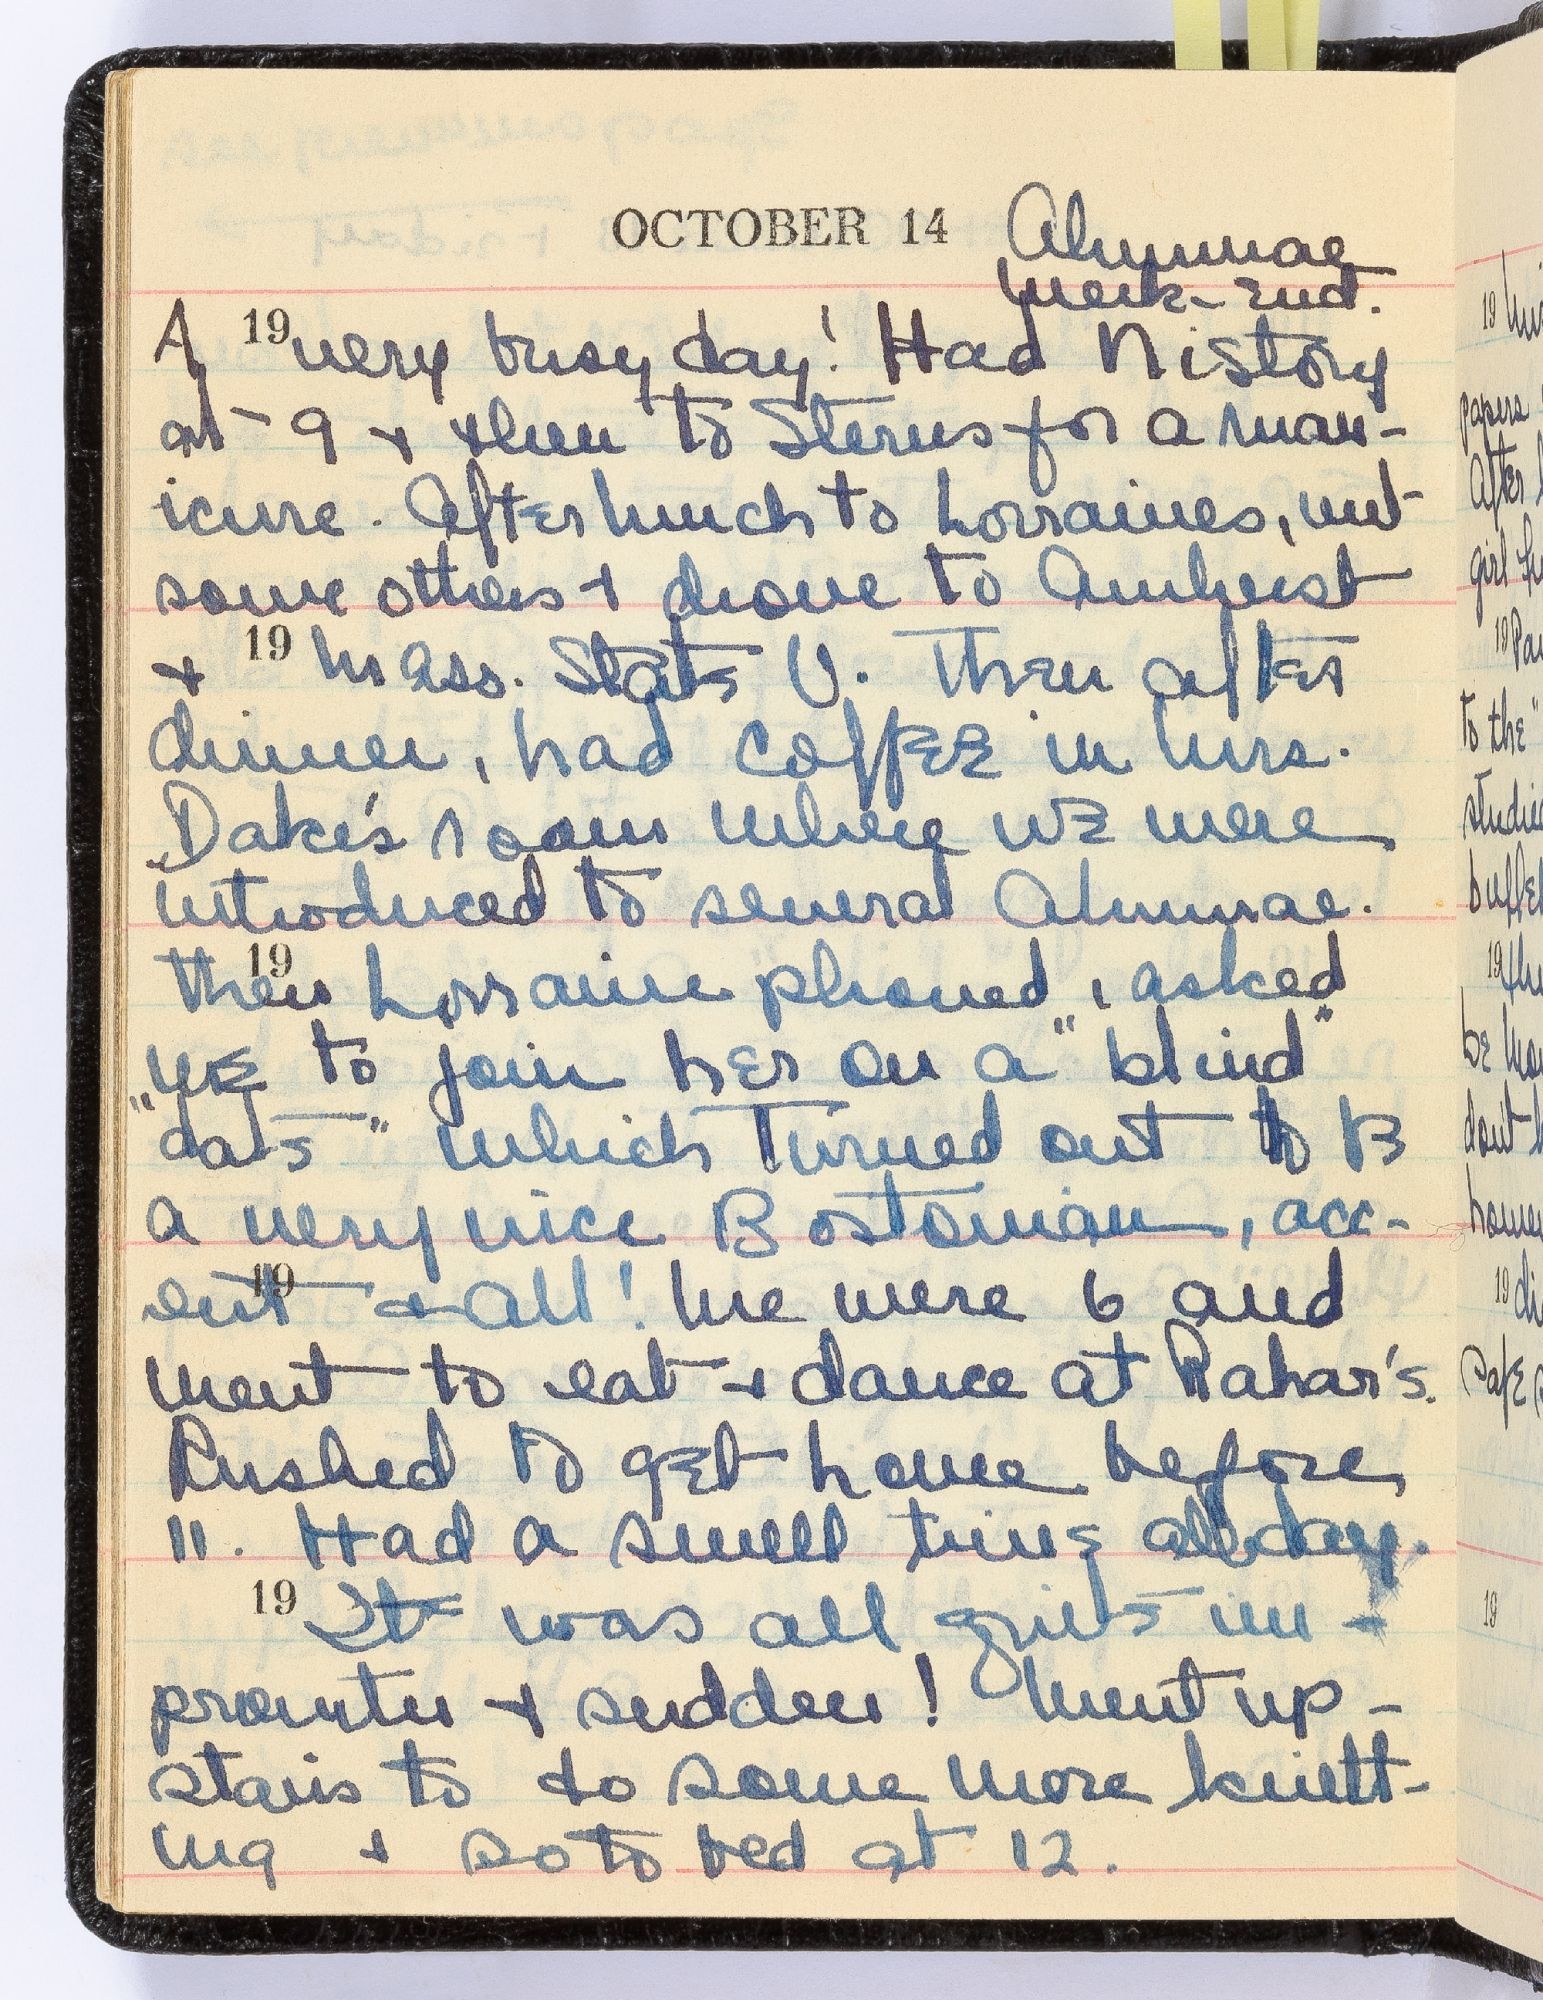 OCTOBER 14 Alumnae
Week-end.
A 19 very busy day! Had History
at 9 + then to Sterns for a man-
icure. After lunch to Lorraines, met
some others + drove to Amherst
+ 19 Mass. State U. Then after
dinner, had coffee in Mrs.
Dake's room where we were
introduced to several Alumnae.
19
Then Lorraine phoned, asked
me to join her on a "blind"
"date" which turned out to B
a very nice Bostonian, acc-
19
ent + all! We were 6 and
went to eat + dance at Rahar's.
Rushed to get home before
11. Had a swell time all day.
19 It was all quite im-
promtu + sudden! Went up-
stairs to do some more knitt-
ing + so to bed at 12.
19
papers
After
girl
19
to the "
studied
19
be
don't
19
19